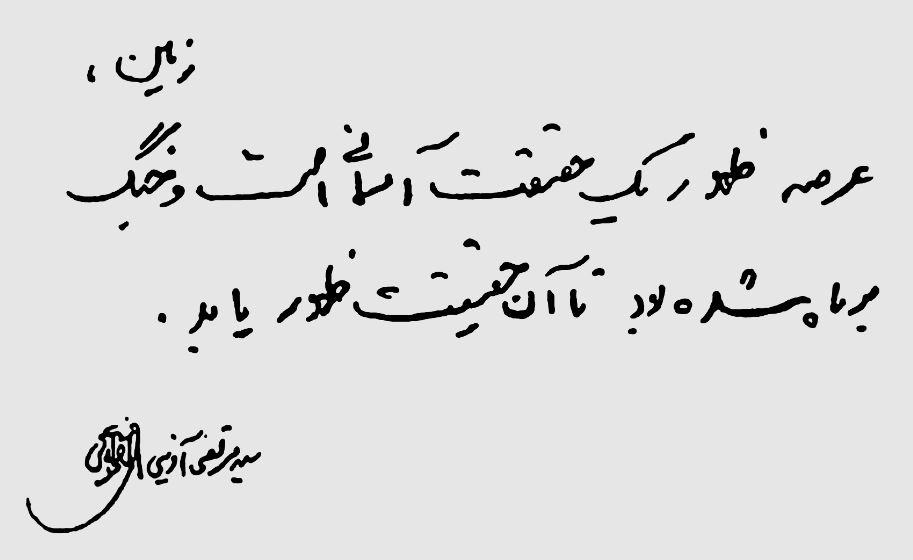 زمین ،
عرصه ظهور یک حقیقت آسمانی است و جنگ
برپا شده بود تا آن حقیقت ظهور یابد .
سید مرتضی آوینی